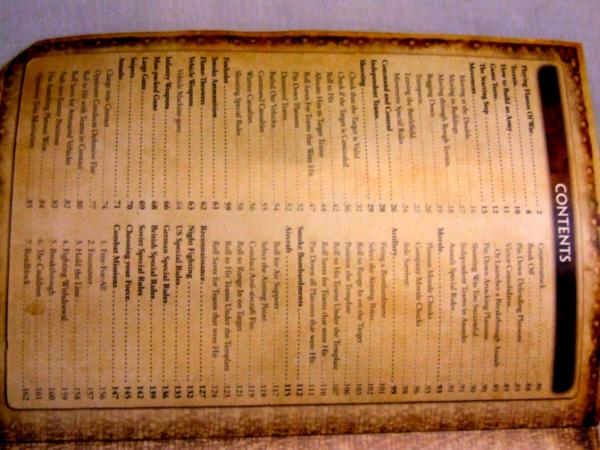 CONTENTS
Playing Flames Of War 2
Terrain 8
How to Build an Army 10
Game Turns 12
The Starting Step 15
Movement 16
Moving at the Double 17
Moving in Buildings 18
Moving through Rough Terrain 19
Bogging Down 20
Transports 22
Leaving the Battlefield 24
Movement Special Rules
Command and Control 26
Independent Teams 28
Shooting 29
Check that the Target is Valid 32
Check if the Target is Concealed 36
Roll to Hit 42
Allocate Hits to Target Teams 44
Roll Saves for Teams that Were Hit 47
Pin Down Platoons 52
Dismount Teams 52
Bailed Out Vehicles 54
Command Casualties 55
Warrior Casualties 56
Shooting Special Rules 58
Fusiliers 59
Smoke Ammunition 61
Flame-Throwers 62
Vehicle Weapons 63
Vehicle Machine-guns 64
Infantry Weapons 66
Man-packed Guns 68
Large Guns 69
Snipers 70
Assaults 71
Charge into Contact 74
Opponent Conducts Defensive Fire 77
Roll to Hit with Teams in Contact 80
Roll Saves for Armoured Vehicles 82
Push into Enemy Positions 83
His Assaulting Platoon Won 84
Opponent Tests Motivation 85
Counterattack 86
Break Off 88
Pin Down Defending Platoons 89
Victor Consolidates 89
Or Launches a Breakthrough Assault 89
Pin Down Attacking Platoons 90
Shooting Was Too Successful 90
Independent Teams in Assaults 91
Assault Special Rules 91
Morale 93
Platoon Morale Checks 93
Company Morale Checks 96
Sole Survivor 98
Artillery 99
Firing a Bombardment 101
Select the Aiming Point 102
Roll to Range In on the Target 103
Position the Template 106
Roll to Hit Teams Under the Template 107
Roll Saves for Teams that were Hit 110
Pin Down all Platoons that were Hit 111
Smoke Bombardments 112
Aircraft 115
Roll for Air Support 117
Select the Aiming Point 118
Conduct Anti-aircraft Fire 119
Roll to Range In on the Target 121
Roll to Hit Teams Under the Template 123
Roll Saves for Teams that were Hit 124
Reconnaissance 127
Night Fighting 132
US Special Rules 133
German Special Rules 136
British Special Rules 139
Soviet Special Rules 142
Choosing your Force 145
Combat Missions 147
1. Free-For-All 156
2. Encounter 157
3. Hold the Line 158
4. Fighting Withdrawal 159
5. Breakthrough 160
6. The Cauldron 161
7. Roadblock 162